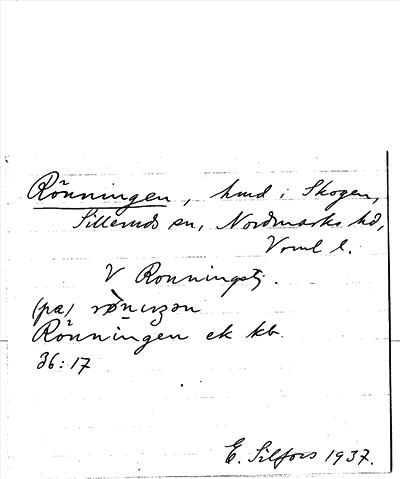 Rönningen, hmd i Skogen,
Silleruds sn, Nordmarks hd,
Vrml l.
V Ronningstj.
(pa)
Rönningen ek kb.
36:17
E. Silfors 1937.